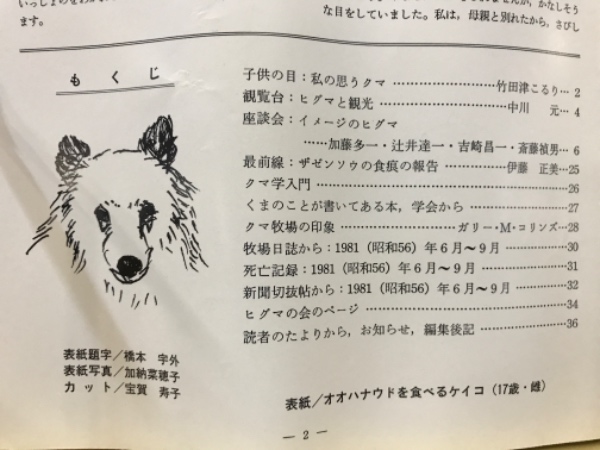 ます。
な目をしていました。私は，母親と別れたから，さびし
もくじ
子供の目：私の思うクマ……………………竹田津こるり… 2
観覧台：ヒグマと観光……………………………中川　元… 4
座談会：イメージのヒグマ
……加藤多一・辻井達一・吉崎昌一・斎藤禎男… 6
最前線：ザゼンソウの食痕の報告……………伊藤　正美…25
クマ学入門……………………………………………………26
くまのことが書いてある本，学会から……………………27
クマ牧場の印象……………………ガリー・M・コリンズ…28
牧場日誌から：1981（昭和56）年６月～９月……………30
死亡記録：1981（昭和56）年６月～９月…………………31
新聞切抜帖から：1981（昭和56）年６月～９月…………32
ヒグマの会のページ…………………………………………34
読者のたよりから，お知らせ，編集後記…………………36
表紙題字／橋本　宇外
表紙写真／加納菜穂子
カット／宝賀　寿子
表紙／オオハナウドを食べるケイコ（17歳・雌）
— 2 —